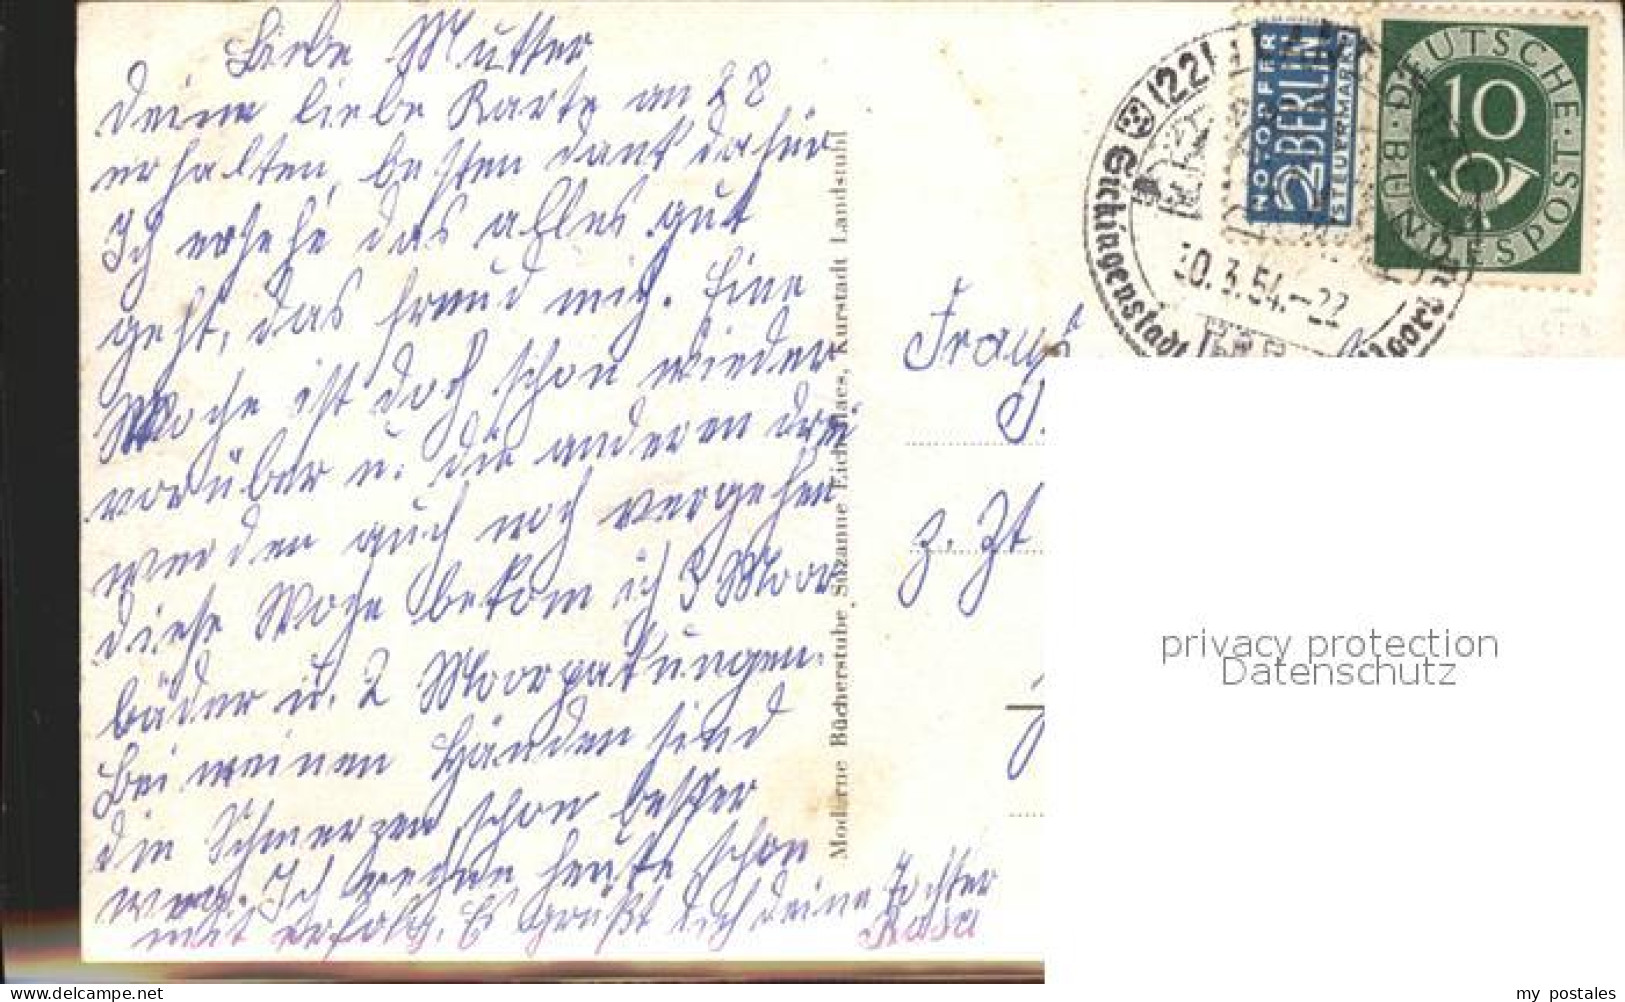 Liebe Mutter
deine liebe Karte am 28
erhalten, besten dank dafür
Ich ersehe das alles gut
geht, das freud mich. Eine
Woche ist doch schon wieder
vorüber u. die anderen drei
werden auch noch vergehen
diese Woche bekom ich 3 Moor
bäder u. 2 Moorpakungen.
Bei meinen Händen sind
die Schmerzen schon besser
weg. Ich rechne heute schon
mit erfolg. Es grüßt dich deine Tochter
Rosa
Moderne Bücherstube, Suzanne Eich-Maes, Kurstadt Landstuhl
(22)
Sickingenstadt
Moorbad
30.3.54.-22
NOTOPFER
2 BERLIN
STEUERMARKE
DEUTSCHE BUNDESPOST
10
z. Zt
privacy protection
Datenschutz
my postales